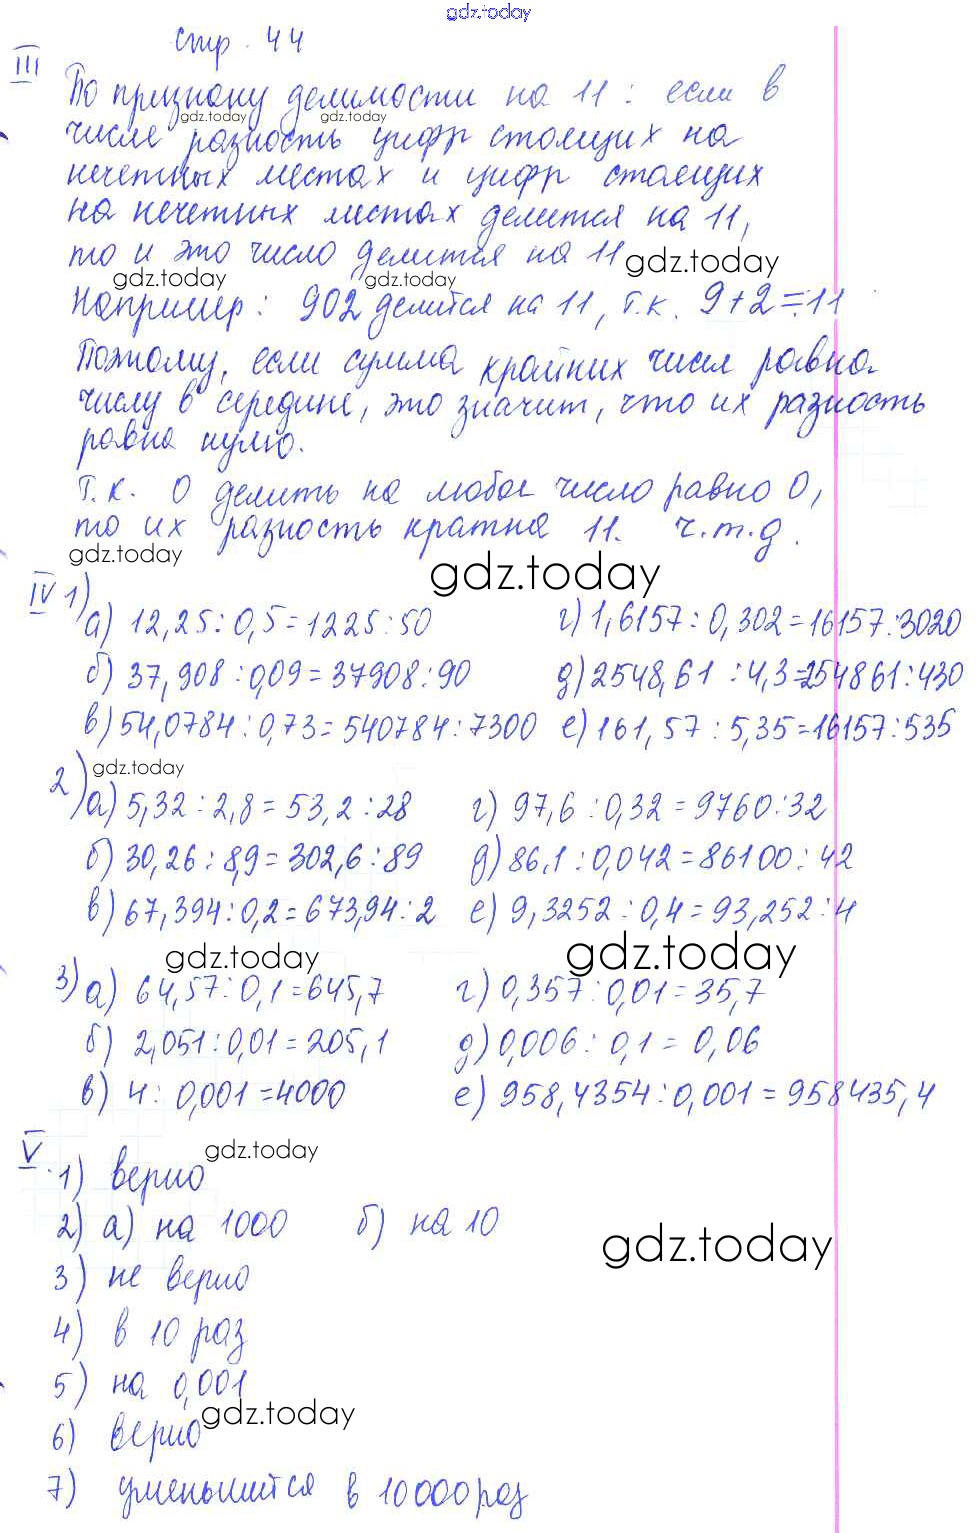 gdz.today
стр. 44
III
По признаку делимости на 11: если в
gdz.today gdz.today
числе разность цифр стоящих на
нечетных местах и цифр стоящих
на нечетных местах делится на 11,
то и это число делится на 11
gdz.today gdz.today gdz.today
Например: 902 делится на 11, т.к. 9+2=11
Поэтому, если сумма крайних чисел равна
числу в середине, это значит, что их разность
равна нулю.
Т.к. 0 делить на любое число равно 0,
то их разность кратна 11. ч.т.д.
gdz.today gdz.today
IV 1)
а) 12,25:0,5=1225:50 г) 1,6157:0,302=16157:3020
б) 37,908:0,09=37908:90 д) 2548,61:4,3=254861:430
в) 54,0784:0,73=540784:7300 е) 161,57:5,35=16157:535
gdz.today
2) а) 5,32:2,8=53,2:28 г) 97,6:0,32=9760:32
б) 30,26:8,9=302,6:89 д) 86,1:0,042=86100:42
в) 67,394:0,2=673,94:2 е) 9,3252:0,4=93,252:4
gdz.today gdz.today
3) а) 64,57:0,1=645,7 г) 0,357:0,01=35,7
б) 2,051:0,01=205,1 д) 0,006:0,1=0,06
в) 4:0,001=4000 е) 958,4354:0,001=958435,4
V.
gdz.today
1) верно
2) а) на 1000 б) на 10
gdz.today
3) не верно
4) в 10 раз
5) на 0,001
gdz.today
6) верно
7) уменьшится в 10000 раз